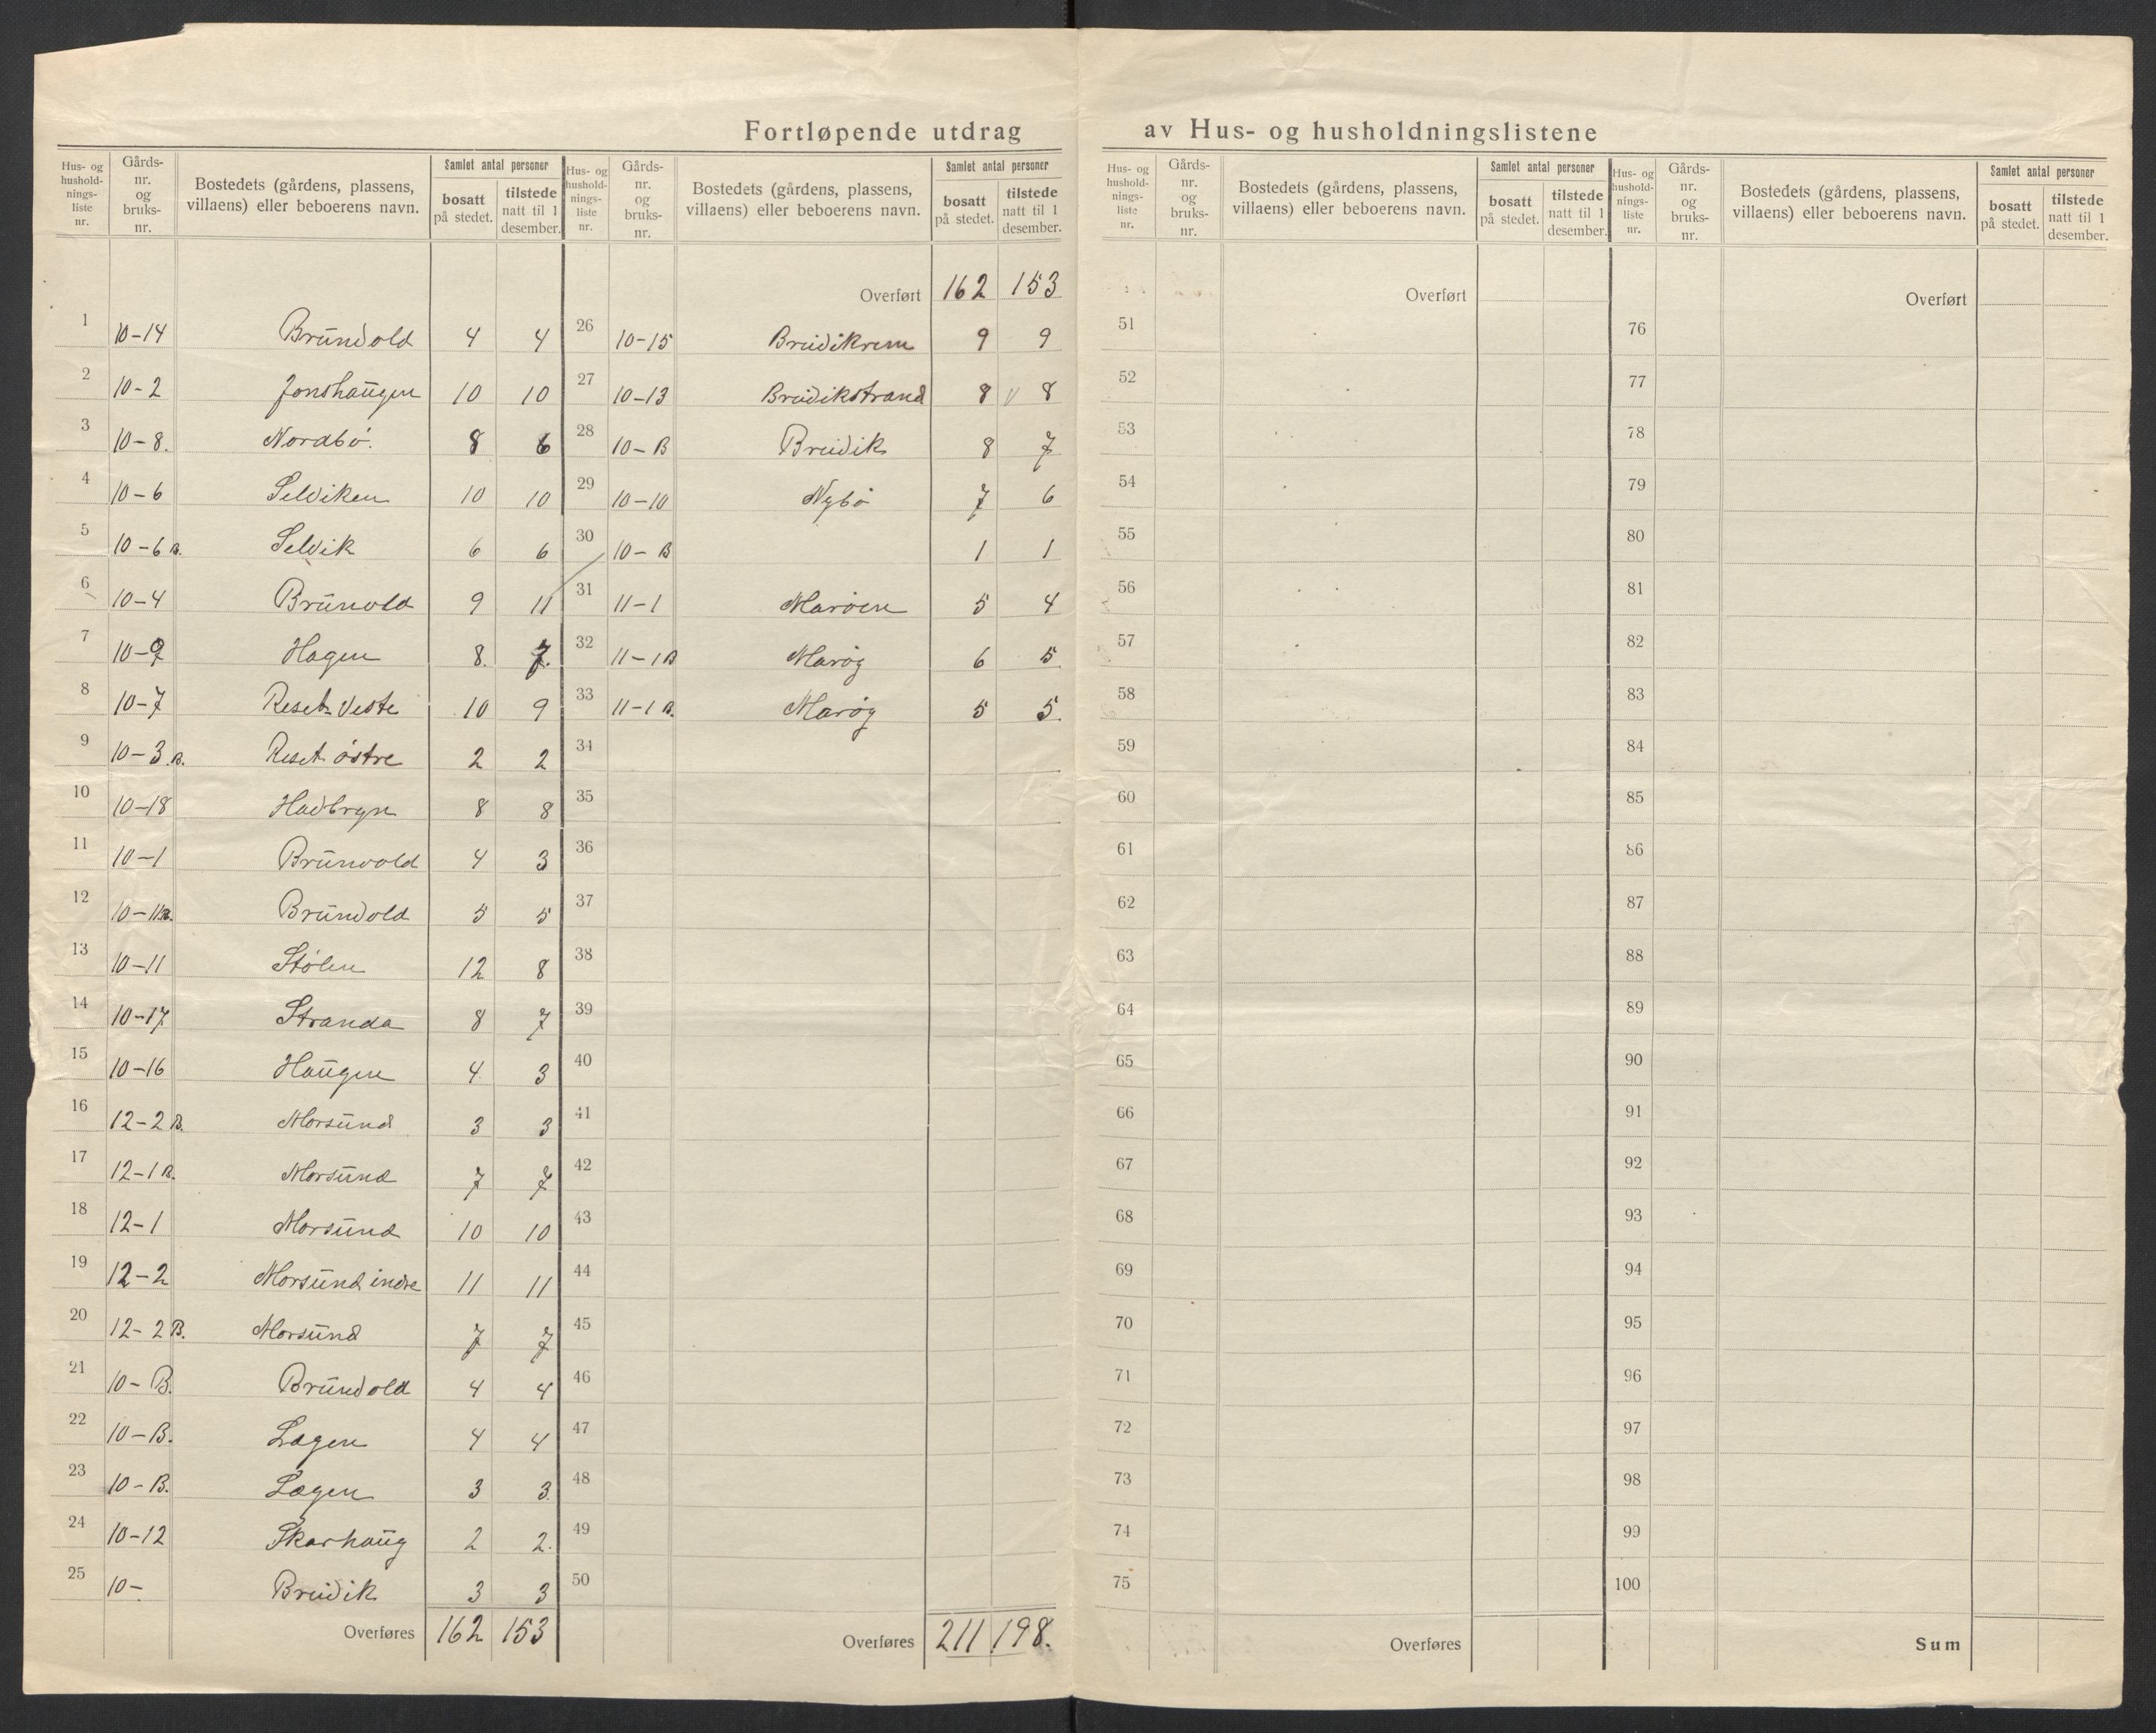 Fortløpende utdrag av Hus- og husholdningslistene
Hus- og husholdnings-liste nr. | Gårds-nr. og bruks-nr. | Bostedets (gårdens, plassens, villaens) eller beboerens navn. | Samlet antal personer | bosatt på stedet. | tilstede natt til 1 desember.
1 10-14 Brŭnvold 4 4
2 10-2 Jonshaŭgen 10 10
3 10-8. Nordbø. 8 6
4 10-6 Selviken 10 10
5 10-6 B. Selvik 6 6
6 10-4 Brŭnvold 9 11
7 10-9 Hagen 8. 7.
8 10-7 Reset-Vestre 10 9
9 10-3 B. Reset østre 2 2
10 10-18 8 8
11 10-1 Brŭnvold 4 3
12 10-11 B. Brŭnvold 5 5
13 10-11 Stølen 12 8
14 10-17 Stranda 8 7
15 10-16 Haŭgen 4 3
16 12-2 B. Morsŭnd 3 3
17 12-1 B. Morsŭnd 7 7
18 12-1 Morsŭnd 10 10
19 12-2 Morsŭnd indre 11 11
20 12-2 B. Morsŭnd 7 7
21 10-B. Brŭnvold 4 4
22 10-B. Lagen 4 4
23 10-B. Lægen 3 3
24 10-12 Skarhaŭg 2 2.
25 10- Breivik 3 3
Overføres 162 153
Hus- og husholdnings-liste nr. | Gårds-nr. og bruks-nr. | Bostedets (gårdens, plassens, villaens) eller beboerens navn. | Samlet antal personer | bosatt på stedet. | tilstede natt til 1 desember.
Overført 162 153
26 10-15 Breivikrem 9 9
27 10-13 Breivikstrand 8 8
28 10-B Breivik 8 7
29 10-10 Nybø 7 6
30 10-B 1 1
31 11-1 Marøen 5 4
32 11-1 B Marøy 6 5
33 11-1 B. Marøy 5 5.
34
35
36
37
38
39
40
41
42
43
44
45
46
47
48
49
50
Overføres 211 198.
Hus- og husholdnings-liste nr. | Gårds-nr. og bruks-nr. | Bostedets (gårdens, plassens, villaens) eller beboerens navn. | Samlet antal personer | bosatt på stedet. | tilstede natt til 1 desember.
Overført
51
52
53
54
55
56
57
58
59
60
61
62
63
64
65
66
67
68
69
70
71
72
73
74
75
Overføres
Hus- og husholdnings-liste nr. | Gårds-nr. og bruks-nr. | Bostedets (gårdens, plassens, villaens) eller beboerens navn. | Samlet antal personer | bosatt på stedet. | tilstede natt til 1 desember.
Overført
76
77
78
79
80
81
82
83
84
85
86
87
88
89
90
91
92
93
94
95
96
97
98
99
100
Sum